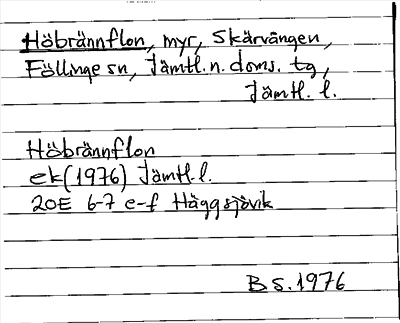 Höbrännflon, myr, Skärvången,
Föllinge sn, Jämtl. n. doms. tg,
Jämtl. l.
Höbrännflon
ek (1976) Jämtl. l.
20E 6-7 e-f Häggsjövik
B S. 1976